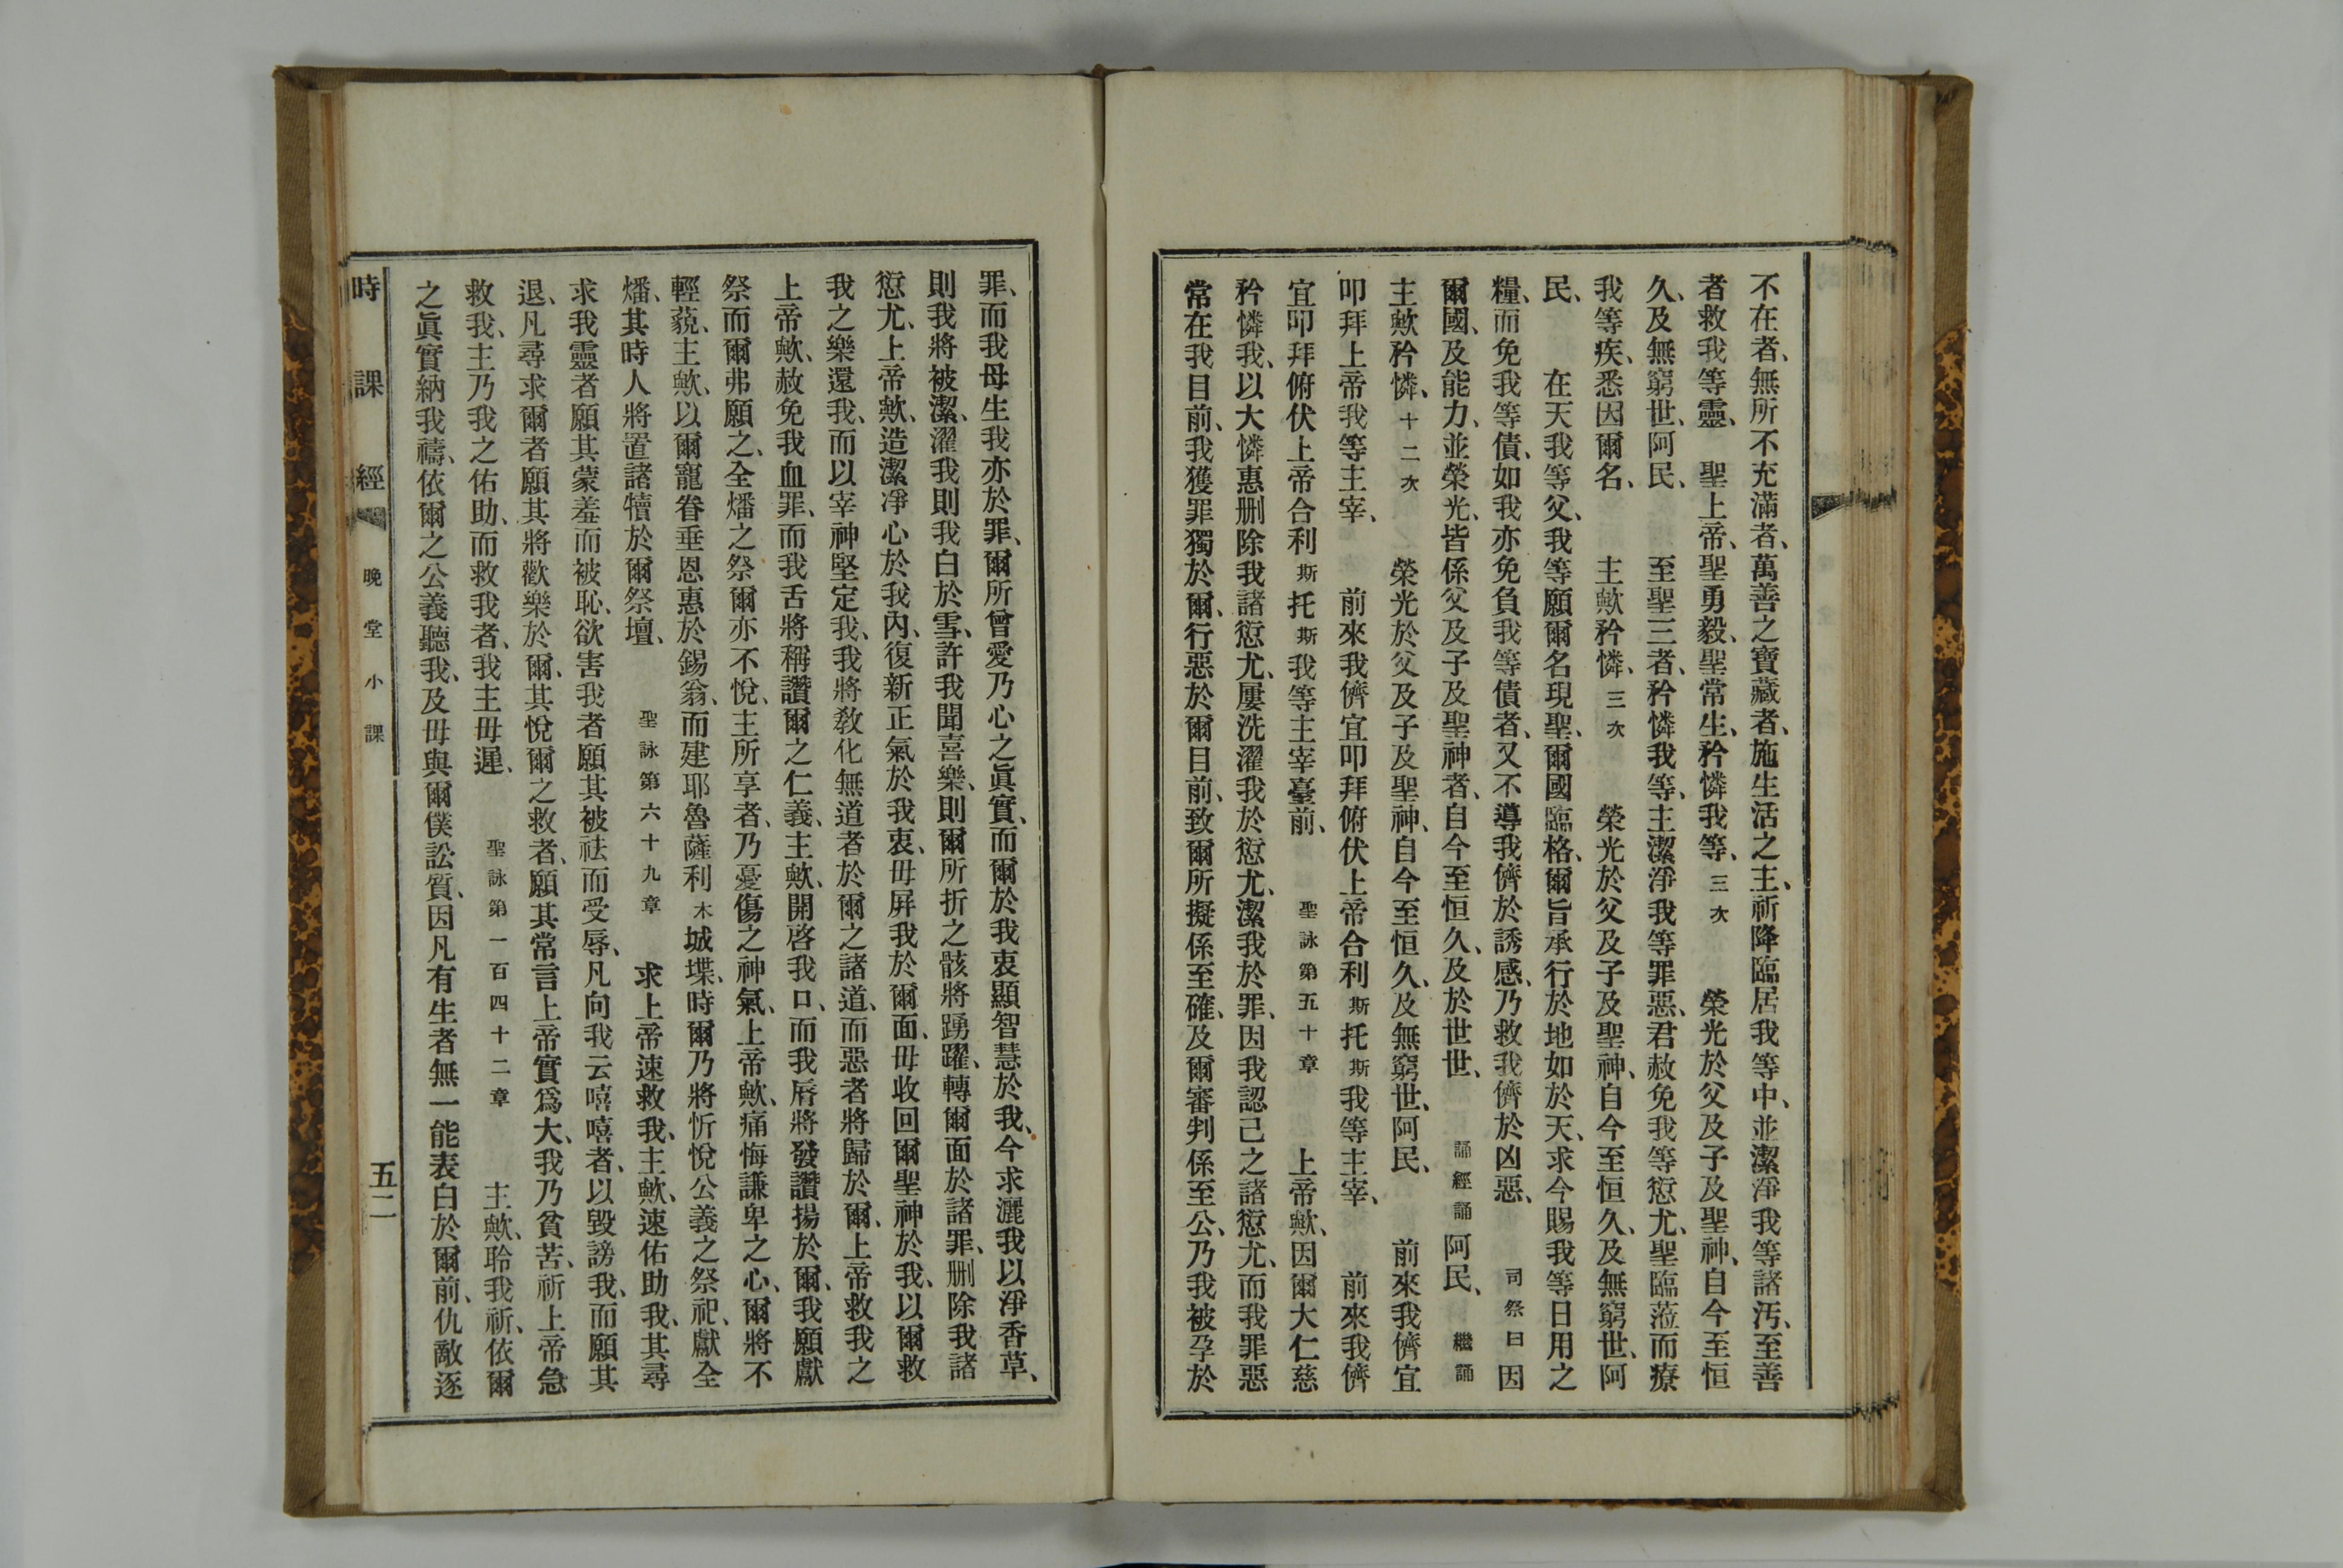 不在者、無所不充滿者、萬善之寶藏者、施生活之主、祈降臨居我等中、並潔淨我等諸汚、至善
者救我等靈、　聖上帝、聖勇毅、聖常生、矜憐我等、三次　榮光於父及子及聖神、自今至恒
久、及無窮世、阿民、　至聖三者、矜憐我等、主潔淨我等罪惡、君赦免我等愆尤、聖臨蒞而療
我等疾、悉因爾名、　主歟矜憐、三次　榮光於父及子及聖神、自今至恒久、及無窮世、阿
民、　在天我等父、我等願爾名現聖、爾國臨格、爾旨承行於地如於天、求今賜我等日用之
糧、而免我等債、如我亦免負我等債者、又不導我儕於誘感、乃救我儕於凶惡、　司祭曰　因
爾國、及能力、並榮光、皆係父及子及聖神者、自今至恒久、及於世世、　誦經誦　阿民、　繼誦
主歟矜憐、十二次　榮光於父及子及聖神、自今至恒久、及無窮世、阿民、　前來我儕宜
叩拜上帝我等主宰、　前來我儕宜叩拜俯伏上帝合利斯托斯我等主宰、　前來我儕
宜叩拜俯伏上帝合利斯托斯我等主宰臺前、　聖詠第五十章　上帝歟、因爾大仁慈
矜憐我、以大憐惠刪除我諸愆尤、屢洗濯我於愆尤、潔我於罪、因我認己之諸愆尤、而我罪惡
常在我目前、我獲罪獨於爾、行惡於爾目前、致爾所擬係至確、及爾審判係至公、乃我被孕於
罪、而我母生我亦於罪、爾所曾愛乃心之眞實、而爾於我衷顯智慧於我、今求灑我以淨香草、
則我將被潔、濯我則我白於雪、許我聞喜樂、則爾所折之骸將踴躍、轉爾面於諸罪、刪除我諸
愆尤、上帝歟、造潔淨心於我內、復新正氣於我衷、毋屏我於爾面、毋收回爾聖神於我、以爾救
我之樂還我、而以宰神堅定我、我將教化無道者於爾之諸道、而惡者將歸於爾、上帝救我之
上帝歟、赦免我血罪、而我舌將稱讚爾之仁義、主歟、開啓我口、而我唇將發讚揚於爾、我願獻
祭而爾弗願之、全燔之祭爾亦不悅、主所享者、乃憂傷之神氣、上帝歟、痛悔謙卑之心、爾將不
輕藐、主歟、以爾寵眷垂恩惠於錫翁、而建耶魯薩利木城堞、時爾乃將忻悅公義之祭祀、獻全
燔、其時人將置諸犢於爾祭壇、　聖詠第六十九章　求上帝速救我、主歟、速佑助我、其尋
求我靈者願其蒙羞而被恥、欲害我者願其被祛而受辱、凡向我云嘻嘻者、以毀謗我、而願其
退、凡尋求爾者願其將歡樂於爾、其悅爾之救者、願其常言上帝實爲大、我乃貧苦、祈上帝急
救我、主乃我之佑助、而救我者、我主毋遲、　聖詠第一百四十二章　主歟、聆我祈、依爾
之眞實納我禱、依爾之公義聽我、及毋與爾僕訟質、因凡有生者無一能表白於爾前、仇敵逐
時課經　晚堂小課　五二